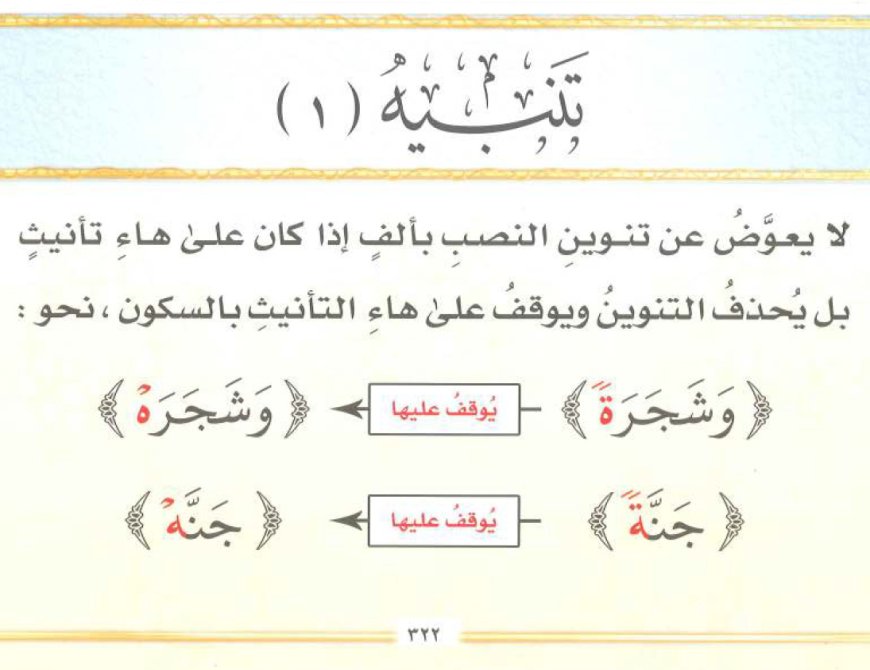 تَنبِيهٌ (١)
لا يعوَّضُ عن تنوينِ النصبِ بألفٍ إذا كان علىٰ هاءِ تأنيثٍ
بل يُحذفُ التنوينُ ويوقفُ علىٰ هاءِ التأنيثِ بالسكون ، نحو :
﴿ وَشَجَرَةً ﴾ يُوقفُ عليها ﴿ وَشَجَرَهْ ﴾
﴿ جَنَّةً ﴾ يُوقفُ عليها ﴿ جَنَّهْ ﴾
٣٢٢